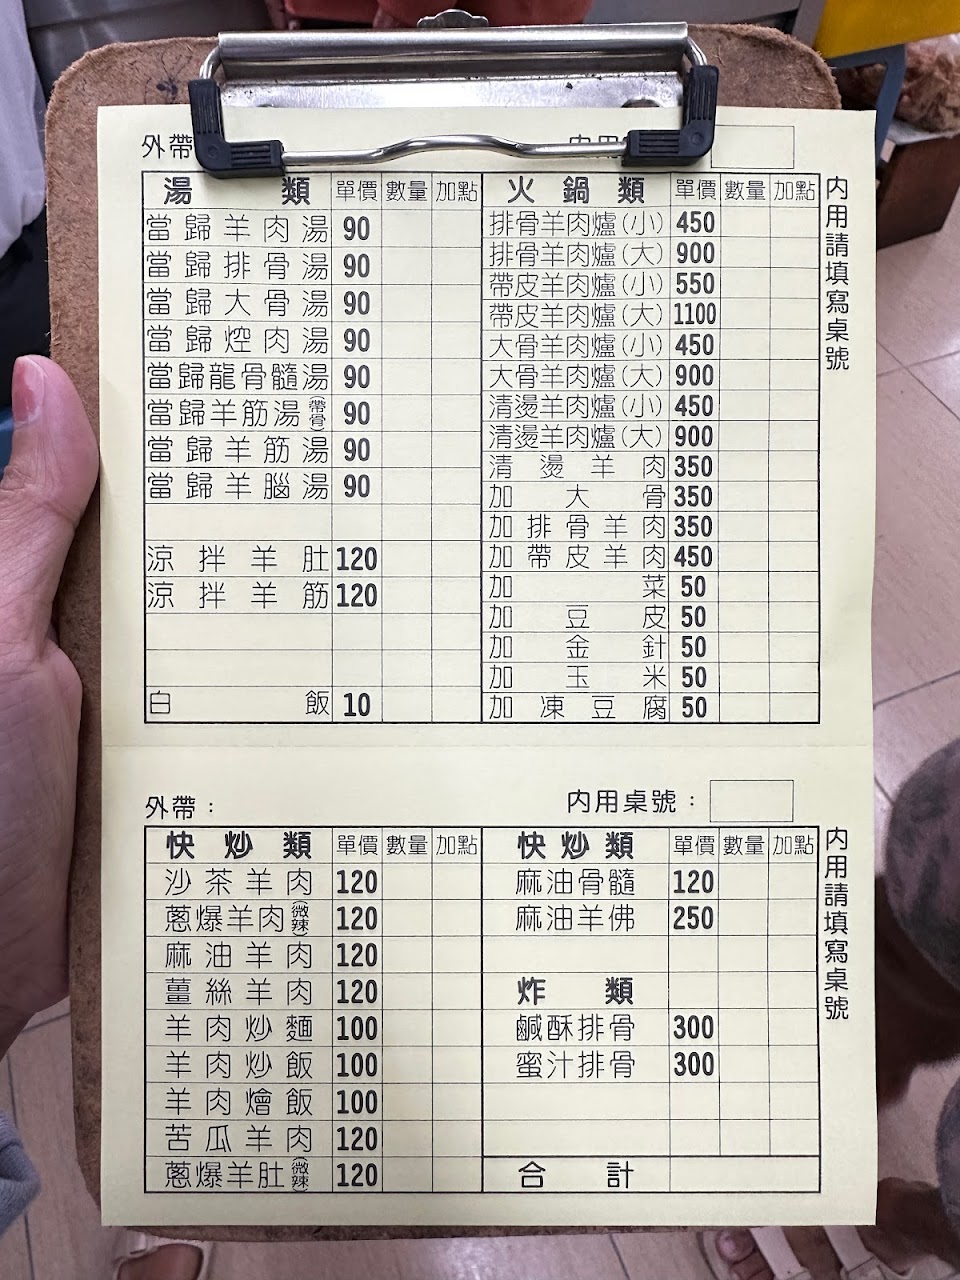 外帶
內用
湯類 單價 數量 加點
當歸羊肉湯 90
當歸排骨湯 90
當歸大骨湯 90
當歸焢肉湯 90
當歸龍骨髓湯 90
當歸羊筋湯(帶骨) 90
當歸羊筋湯 90
當歸羊腦湯 90
涼拌羊肚 120
涼拌羊筋 120
白飯 10
火鍋類 單價 數量 加點
排骨羊肉爐(小) 450
排骨羊肉爐(大) 900
帶皮羊肉爐(小) 550
帶皮羊肉爐(大) 1100
大骨羊肉爐(小) 450
大骨羊肉爐(大) 900
清燙羊肉爐(小) 450
清燙羊肉爐(大) 900
清燙羊肉 350
加大骨 350
加排骨羊肉 350
加帶皮羊肉 450
加菜 50
加豆皮 50
加金針 50
加玉米 50
加凍豆腐 50
內用請填寫桌號
外帶：
內用桌號：
快炒類 單價 數量 加點
沙茶羊肉 120
蔥爆羊肉(微辣) 120
麻油羊肉 120
薑絲羊肉 120
羊肉炒麵 100
羊肉炒飯 100
羊肉燴飯 100
苦瓜羊肉 120
蔥爆羊肚(微辣) 120
快炒類 單價 數量 加點
麻油骨髓 120
麻油羊佛 250
炸類
鹹酥排骨 300
蜜汁排骨 300
合計
內用請填寫桌號